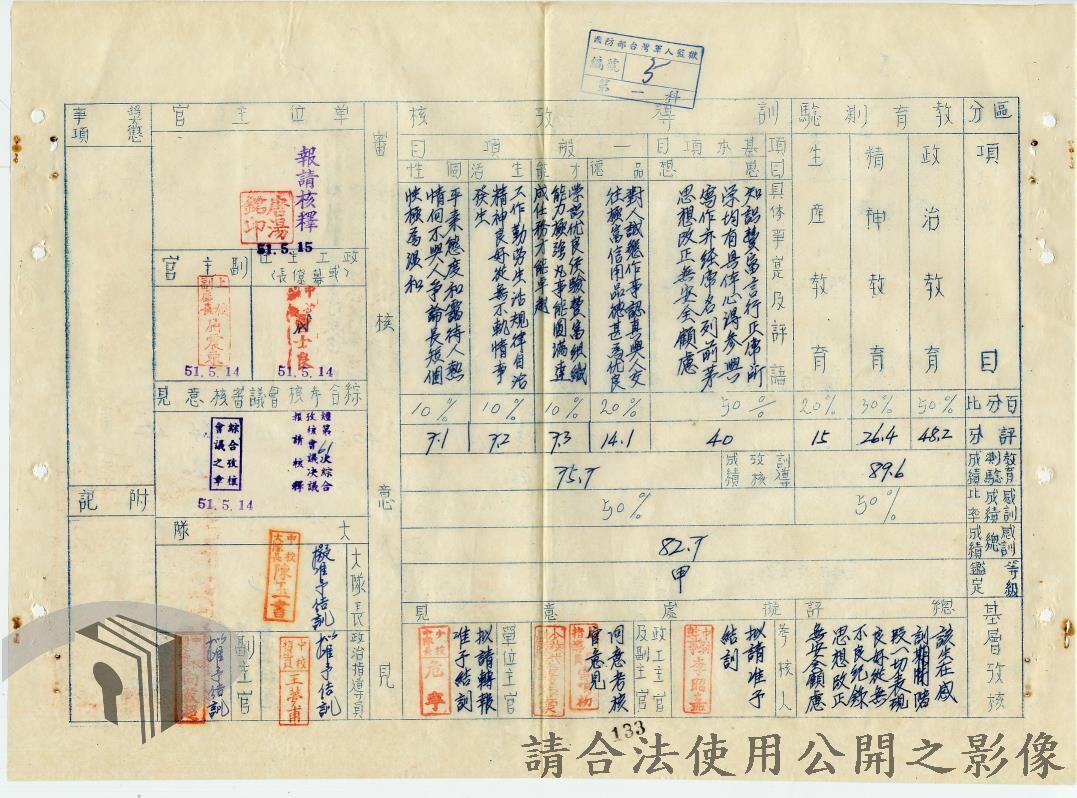 國防部台灣軍人監獄
編號 5
第一科
區分
項目
百分比
評分
教育測驗成績
感訓成績比率
感訓總成績
等級鑑定
基層考核
教育測驗
政治教育
精神教育
生產教育
50% 30% 20%
48.2 26.4 15
89.6
50%
訓導考核
項目
具体事實及評語
基本項目
思想
知識豐富言行正常所
学均有具体心得參與
寫作亦経常名列前茅
思想改正無安全顧慮
50%
40
一般項目
品德
對人誠懇作事認真與人交
往極富信用品德甚為优良
20%
14.1
才能
學識优良经驗豐富組織
能力極強凡事能圓滿達
成任務才能卓越
10%
7.3
生活
工作勤勞生活規律自治
精神良好從無不軌情事
發生
10%
7.2
個性
平素態度和靄待人熱
情向不與人爭論長短個
性極為溫和
10%
7.1
訓導考核成績
75.7
50%
82.7
甲
總評
該生在感
訓期間階
段一切表現
良好從無
不良紀錄
思想改正
無安全顧慮
擬處意見
考核人
擬請准予
結訓
政工主官及副主官
同意考核
官意見
單位主官
拟請轉報
准予結訓
審核意見
單位主官
報請核釋
唐湯銘印
51.5.15
政工主官
(或幕僚長)
51.5.14
副主官
51.5.14
綜合考核會議審核意見
經第61次綜合
考核會議決議
報請核釋
綜合考核
會議之章
51.5.14
大隊
大隊長
擬准予結訓
中校大隊長陳玉書
政治指導員
擬准予結訓
王夢甫
副主官
擬准予結訓
獎懲事項
附記
133
請合法使用公開之影像